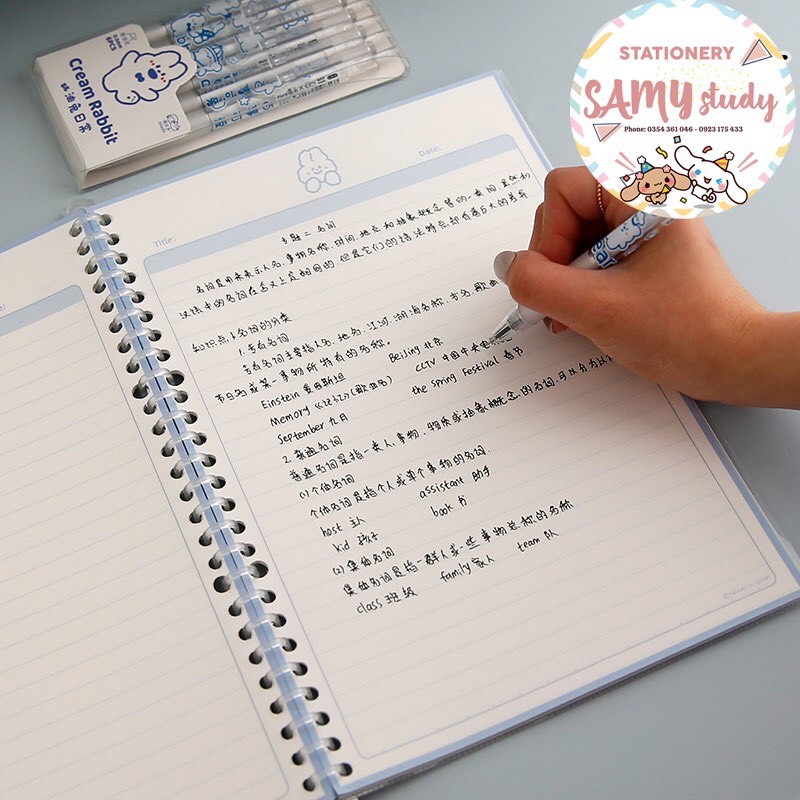 STATIONERY
SAMY study
Phone: 0354 361 046 - 0923 175 433
Cream Rabbit
奶油兔日常
Title:
Date:
专题二 名词
名词是用来表示人名、事物名称、时间、地点和抽象概念等的一类词,虽然和
汉语中的名词在含义上是相同的,但是它们的语法特点却有着巨大的差异
知识点1 名词的分类
1.专有名词
专有名词主要指人名、地名、江河、湖海名称、书名、歌曲
节日名或某一事物所特有的名称。
Einstein 爱因斯坦 Beijing 北京
Memory《记忆》(歌曲名) CCTV 中国中央电
September 九月 the Spring Festival 春节
2.普通名词
普通名词是指一类人、事物、物质或抽象概念的名词,可以分为以
(1)个体名词
个体名词是指个人或单个事物的名词.
host 主人 assistant 助手
kid 孩子 book 书
(2)集体名词
集体名词是指一群人或一些事物总称的名称
class 班级 family 家人 team 队